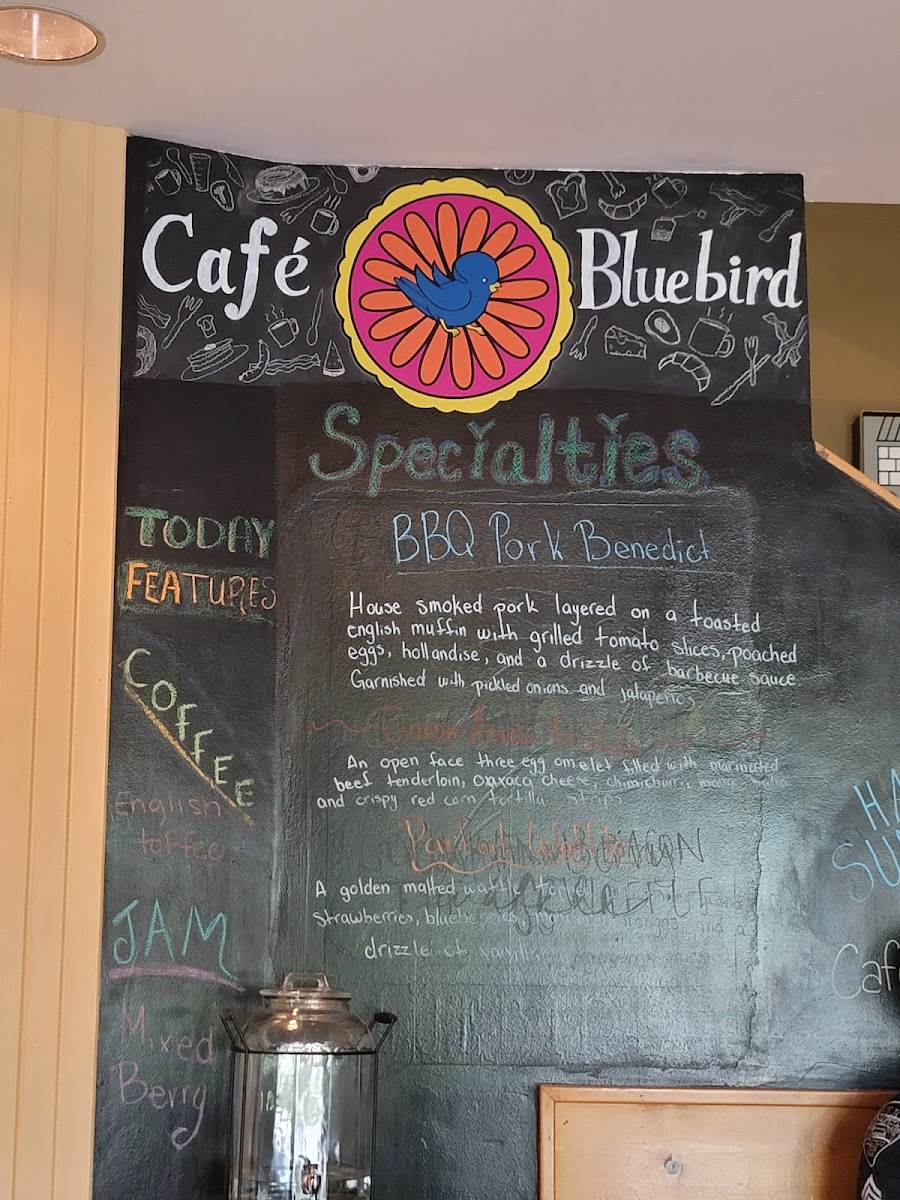 Café Bluebird
Specialties
TODAY
FEATURES
COFFEE
English
toffee
JAM
Mixed
Berry
BBQ Pork Benedict
House smoked pork layered on a toasted
english muffin with grilled tomato slices, poached
eggs, hollandise, and a drizzle of barbecue sauce
Garnished with pickled onions and jalapenos
An open face three egg omelet filled with marinated
beef tenderloin, oaxaca cheese, chimichurri,
and crispy red corn tortilla strips
Parfait Waffle
A golden malted waffle topped
strawberries, blueberries,
drizzle of
HA
SU
Caf